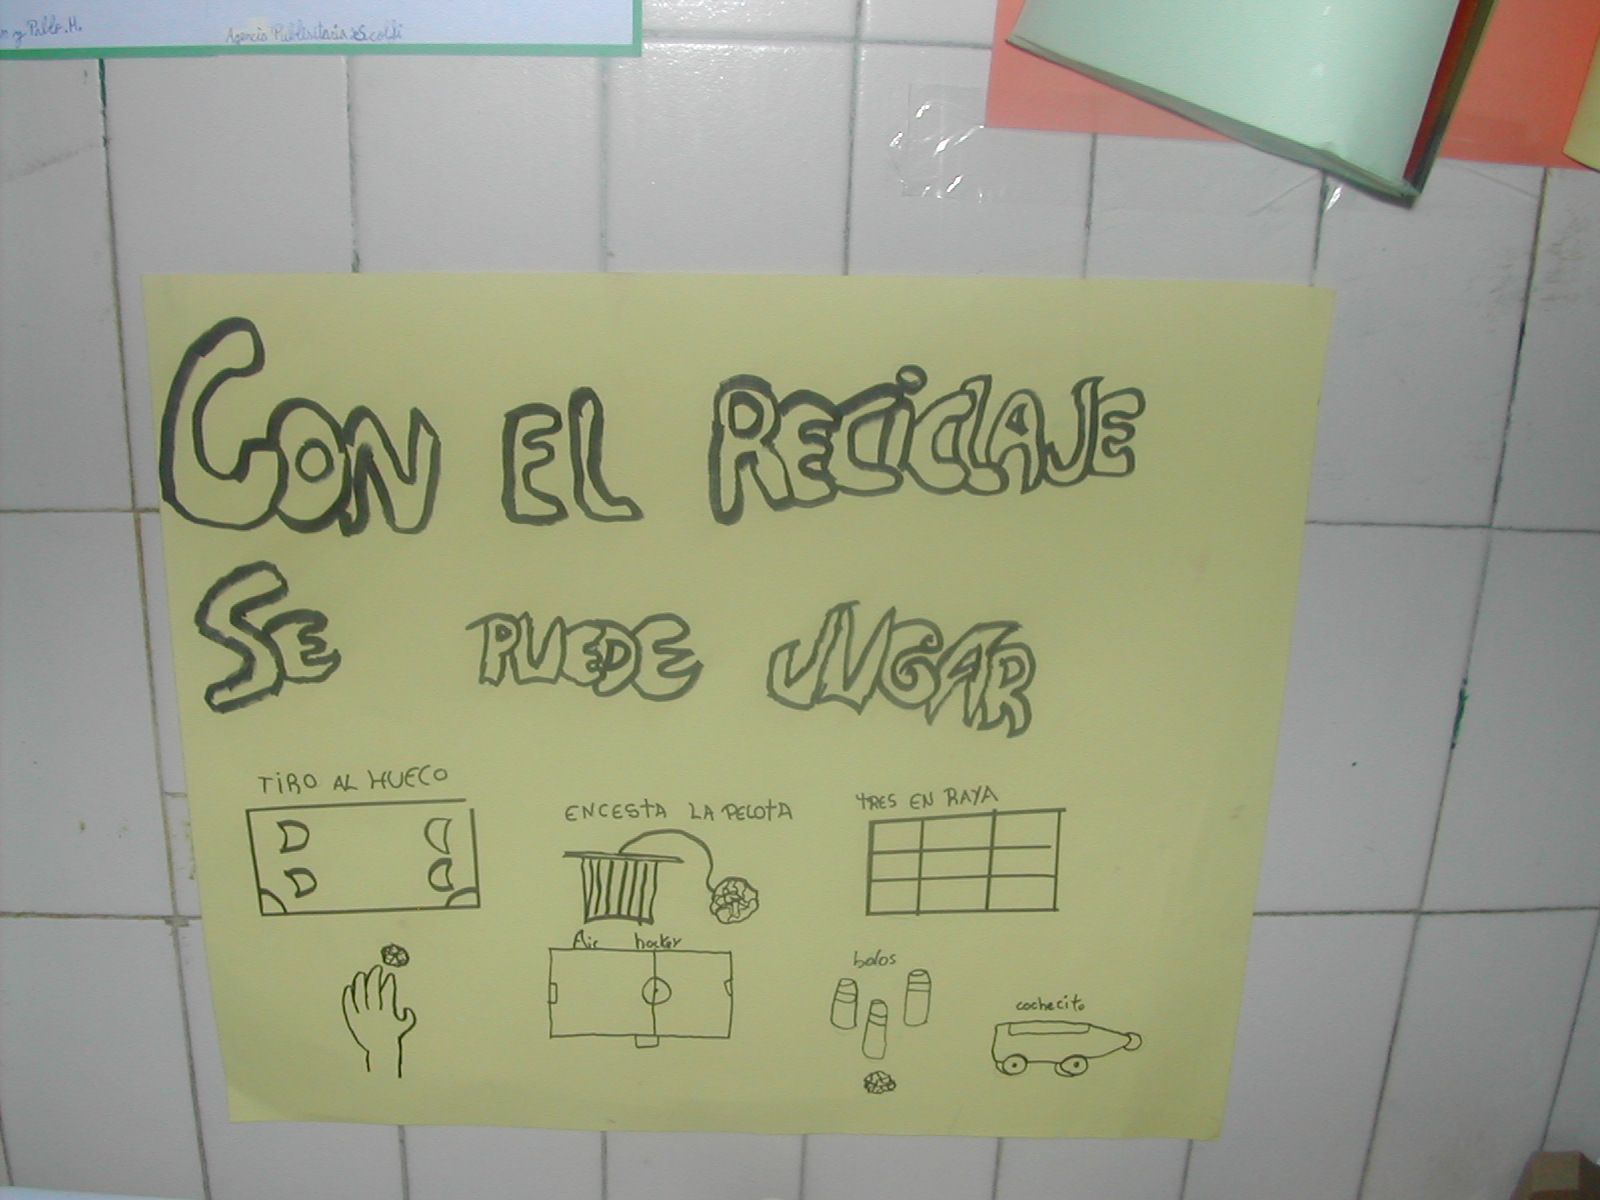 y Pablo.M.
Agencia Publisitaria
CON EL RECICLAJE
SE PUEDE JUGAR
TiRO AL HUECO
ENCESTA LA PELOTA
TRES EN RAYA
Air hockey
bolos
cochecito